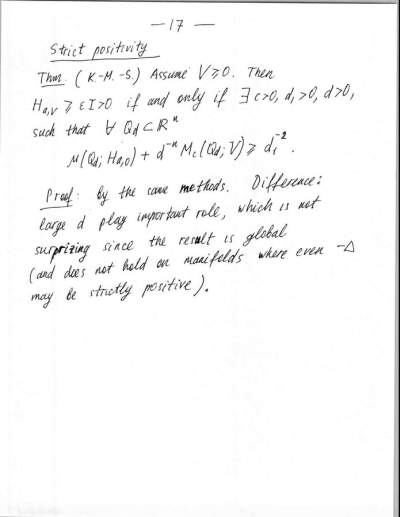 — 17 —
Strict positivity
Thm. (K.-M.-S.) Assume V ≥ 0. Then
H_{a,V} ≥ εI > 0 if and only if ∃ c>0, d₁>0, d>0,
such that ∀ Q_d ⊂ ℝⁿ
μ(Q_d; H_{a,0}) + d⁻ⁿ M_c(Q_d; V) ≥ d₁⁻².
Proof: by the same methods. Difference:
large d play important role, which is not
surprizing since the result is global
(and does not hold on manifolds where even -Δ
may be strictly positive).